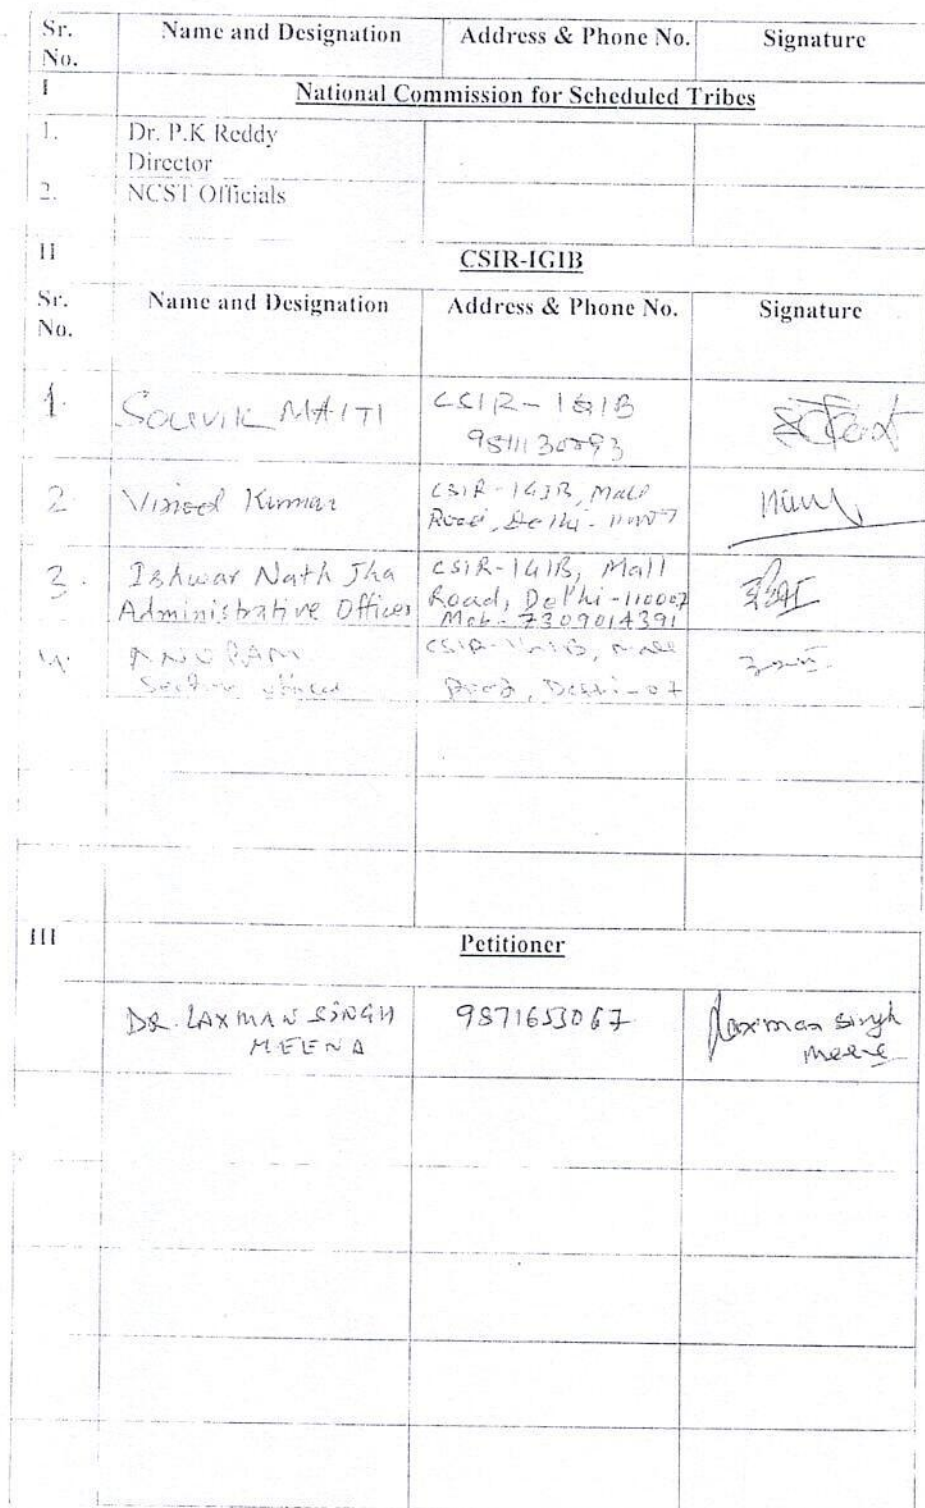 Sr. No.
Name and Designation
Address & Phone No.
Signature
I
National Commission for Scheduled Tribes
1.
Dr. P.K Reddy
Director
2.
NCST Officials
II
CSIR-IGIB
Sr. No.
Name and Designation
Address & Phone No.
Signature
1.
SOUVIK MAITI
CSIR-IGIB
2
Vinod Kumar
CSIR-IGIB, Mall
Road, Delhi-110007
3.
Ishwar Nath Jha
Administrative Officer
CSIR-IGIB, Mall
Road, Delhi-110007
Mob-7309014391
4.
ANUPAM
Section Officer
CSIR-IGIB, Mall
Road, Delhi-07
III
Petitioner
DR. LAXMAN SINGH
MEENA
9871653067
Laxman singh
meena